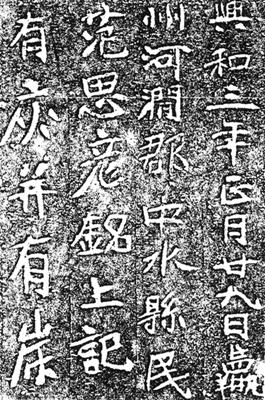 興和三年正月廿九日瀛
州河澗郡中水縣民
范思彦銘上記
有灰并有炭